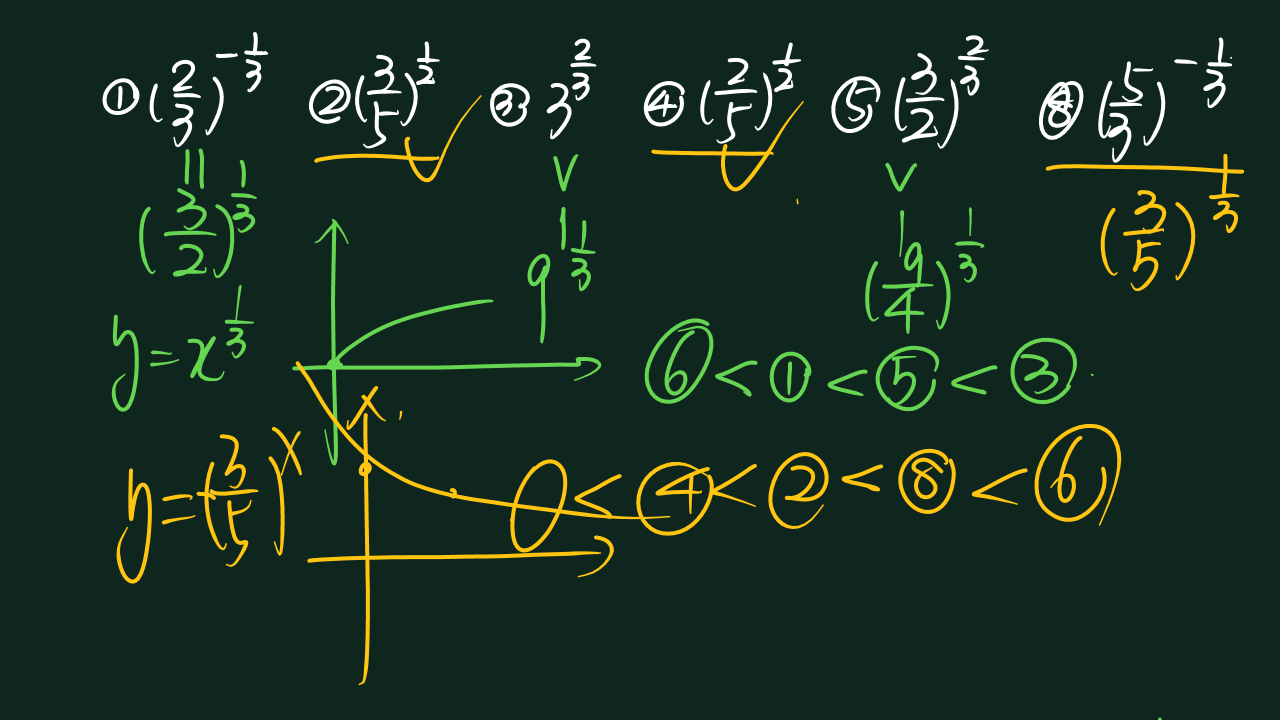 ① (2/3)^{-1/3} ② (3/5)^{1/2} ③ 3^{2/3} ④ (2/5)^{1/2} ⑤ (3/2)^{2/3} ⑧ (5/3)^{-1/3}
|| ∨ ∨
(3/2)^{1/3} 9^{1/3} (9/4)^{1/3} (3/5)^{1/3}
y = x^{1/3}
⑥ < ① < ⑤ < ③
y = (3/5)^x
0 < ④ < ② < ⑧ < ⑥